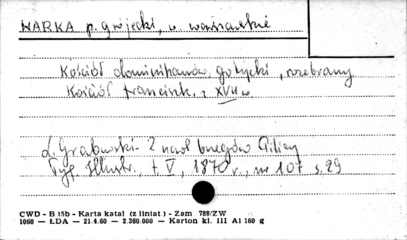 WARKA p. grójecki, w. warszawskie
Kościół dominikanów, gotycki, rozebrany
Kościół francisk. z XVII w
L. Grabowski - Z nad brzegów Pilicy
Tyg. Illustr., t. V, 1870 r., nr 107 s. 29
CWD - B 15b - Karta katal (z liniat.) - Zam 788/ZW
1060 — ŁDA — 21.4.60 — 2.360.000 — Karton kl. III A1 160 g